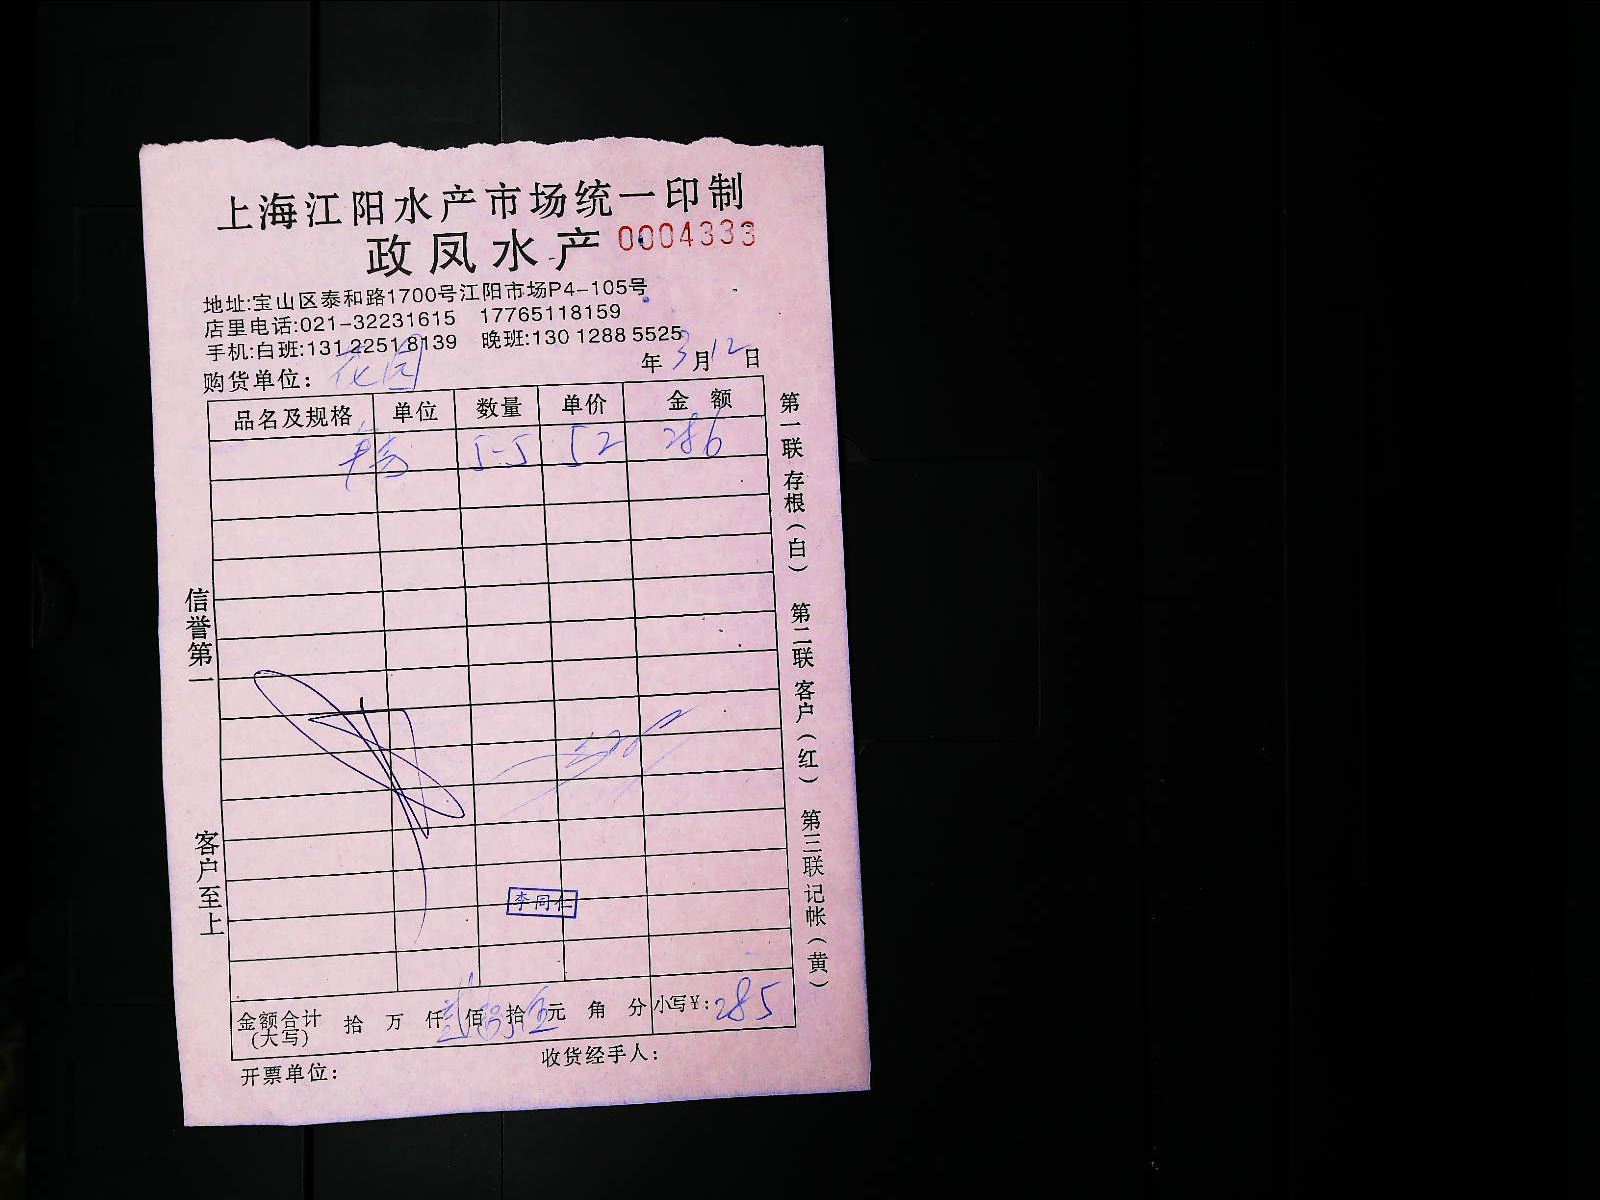 上海江阳水产市场统一印制
政凤水产 0004333
地址:宝山区泰和路1700号江阳市场P4-105号
店里电话:021-32231615 17765118159
手机:白班:131 2251 8139 晚班:130 1288 5525
购货单位: 花园 年 3月12日
品名及规格 单位 数量 单价 金额
5-5 52 286
李同仁
金额合计(大写) 拾 万 仟 贰佰捌拾伍元 角 分 小写¥:285
开票单位: 收货经手人:
信誉第一
客户至上
第一联存根(白) 第二联客户(红) 第三联记帐(黄)